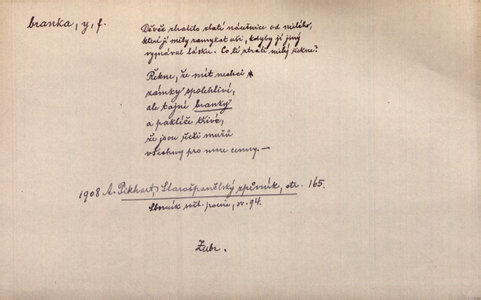 branka, y, f.
Děvče ztratilo zlaté náušnice od milého,
které jí milý zamykat uší, kdyby jí jiný
vyznával lásku. Co ti ztráti milý řekne?
Řekne, že mít nechci
zámky spolehlivé,
ale tajné branky
a paklíče křivé,
že jsou řeči mužů
všechny pro mne cenny. —
1908 A. Pikhart, Starošpanělský zpěvník, str. 165.
Sborník svět. poesie, sv. 94.
Zubr.